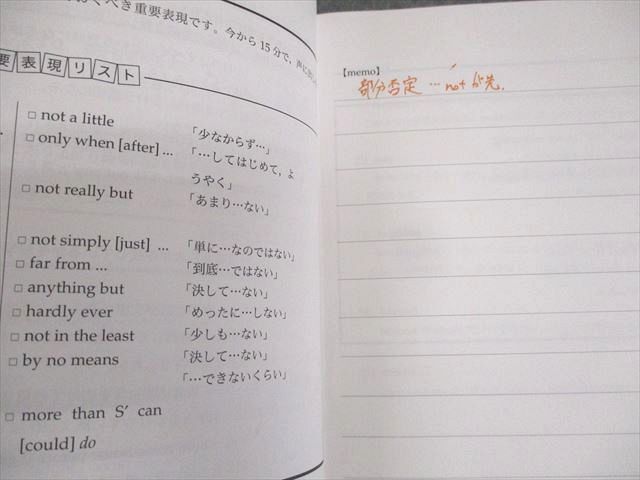 くべき重要表現です。今から15分で、声に出し
要表現リスト
□ not a little 「少なからず…」
□ only when [after] ... 「…してはじめて，よ
うやく」
□ not really but 「あまり…ない」
□ not simply [just] ... 「単に…なのではない」
□ far from ... 「到底…ではない」
□ anything but 「決して…ない」
□ hardly ever 「めったに…しない」
□ not in the least 「少しも…ない」
□ by no means 「決して…ない」
「…できないくらい」
□ more than S′ can
[could] do
【memo】
部分否定 … not が先.